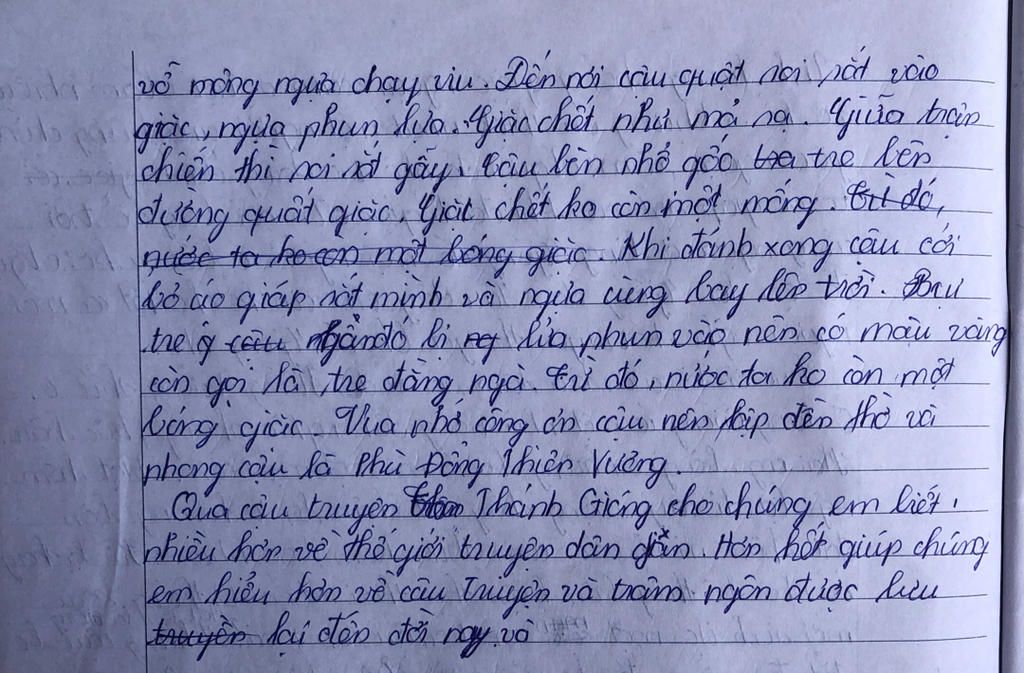 vỗ mông ngựa chạy viu. Đến nơi cậu quật roi sắt vào
giặc, ngựa phun lửa. Giặc chết như mả rạ. Giữa trận
chiến thì roi sắt gãy, cậu lền nhổ gốc tra tre bên
đường quất giặc, Giặc chết ko còn một mống. từ đó,
nước ta ko con một bóng giặc. Khi đánh xong cậu cởi
bỏ áo giáp sắt mình và ngựa cùng bay lên trời. Bụi
tre ở cậu gần đó bị ng lửa phun vào nên có màu vàng
còn gọi là tre đằng ngà. từ đó, nước ta ko còn một
bóng giặc. Vua nhớ công ơn cậu nên lập đền thờ và
phong cậu là Phù Đổng Thiên Vương.
Qua câu truyện Thánh Gióng cho chúng em biết
nhiều hơn về thế giới truyện dân gian. Hơn hết giúp chúng
em hiểu hơn về câu truyện và trâm ngôn được lưu
truyền lại đến đời nay và